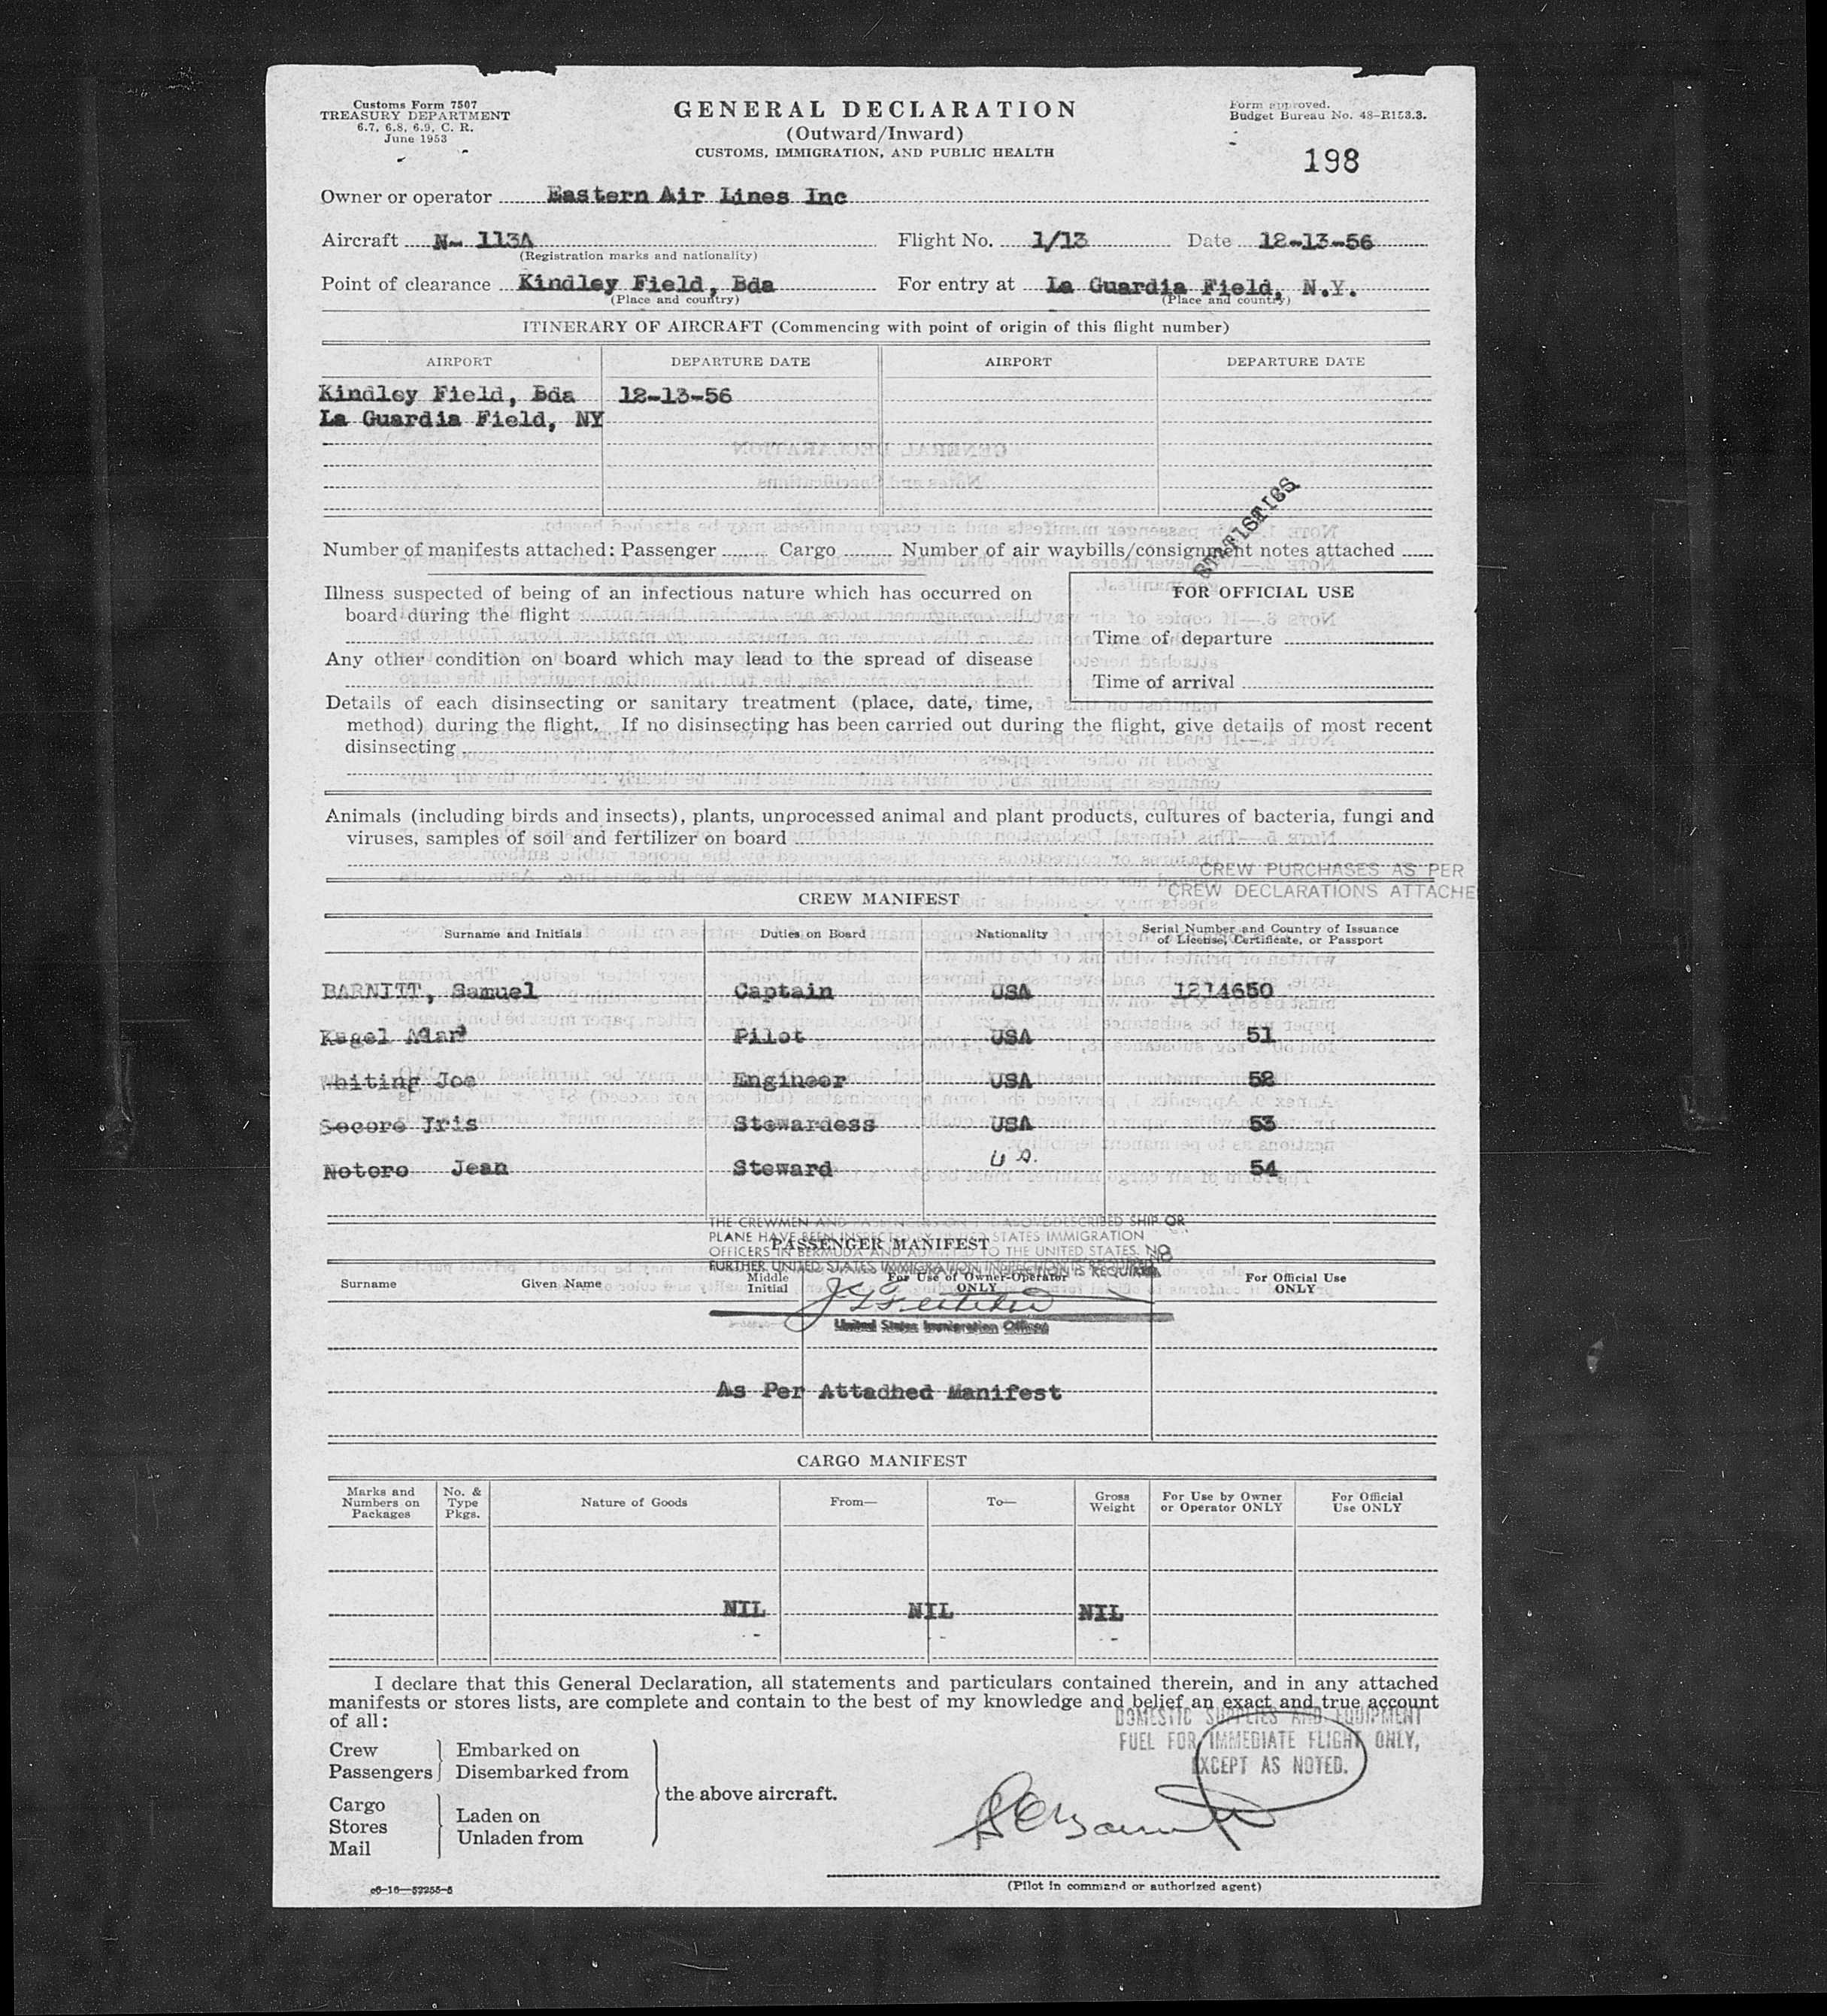 Customs Form 7507
TREASURY DEPARTMENT
6.7, 6.8, 6.9, C. R.
June 1953
GENERAL DECLARATION
(Outward/Inward)
CUSTOMS, IMMIGRATION, AND PUBLIC HEALTH
Form approved.
Budget Bureau No. 48-R153.3.
198
Owner or operator Eastern Air Lines Inc
Aircraft N- 113A Flight No. 1/13 Date 12-13-56
(Registration marks and nationality)
Point of clearance Kindley Field, Bda For entry at La Guardia Field, N.Y.
(Place and country) (Place and country)
ITINERARY OF AIRCRAFT (Commencing with point of origin of this flight number)
AIRPORT DEPARTURE DATE AIRPORT DEPARTURE DATE
Kindley Field, Bda 12-13-56
La Guardia Field, NY
STATISTICS
Number of manifests attached: Passenger Cargo Number of air waybills/consignment notes attached
Illness suspected of being of an infectious nature which has occurred on
board during the flight
Any other condition on board which may lead to the spread of disease
FOR OFFICIAL USE
Time of departure
Time of arrival
Details of each disinsecting or sanitary treatment (place, date, time,
method) during the flight. If no disinsecting has been carried out during the flight, give details of most recent
disinsecting
Animals (including birds and insects), plants, unprocessed animal and plant products, cultures of bacteria, fungi and
viruses, samples of soil and fertilizer on board
CREW PURCHASES AS PER
CREW DECLARATIONS ATTACHE
CREW MANIFEST
Surname and Initials Duties on Board Nationality Serial Number and Country of Issuance
of License, Certificate, or Passport
BARNITT, Samuel Captain USA 1214650
Kugel Pilot USA 51
Whiting Joe Engineer USA 52
Secore Iris Stewardess USA 53
Notoro Jean Steward U S. 54
THE CREWMEN AND PASSENGERS ON THE ABOVE DESCRIBED SHIP OR
PLANE HAVE BEEN INSPECTED BY UNITED STATES IMMIGRATION
OFFICERS IN BERMUDA AND ADMITTED TO THE UNITED STATES. NO
FURTHER UNITED STATES IMMIGRATION INSPECTION IS REQUIRED
PASSENGER MANIFEST
Surname Given Name Middle
Initial For Use of Owner-Operator
ONLY For Official Use
ONLY
United States Immigration Officer
As Per Attadhed Manifest
CARGO MANIFEST
Marks and
Numbers on
Packages No. &
Type
Pkgs. Nature of Goods From— To— Gross
Weight For Use by Owner
or Operator ONLY For Official
Use ONLY
NIL NIL NIL
I declare that this General Declaration, all statements and particulars contained therein, and in any attached
manifests or stores lists, are complete and contain to the best of my knowledge and belief an exact and true account
of all:
DOMESTIC SUPPLIES AND EQUIPMENT
FUEL FOR IMMEDIATE FLIGHT ONLY,
EXCEPT AS NOTED.
Crew
Passengers
Embarked on
Disembarked from
Cargo
Stores
Mail
Laden on
Unladen from
the above aircraft.
(Pilot in command or authorized agent)
c6-16—52255-5